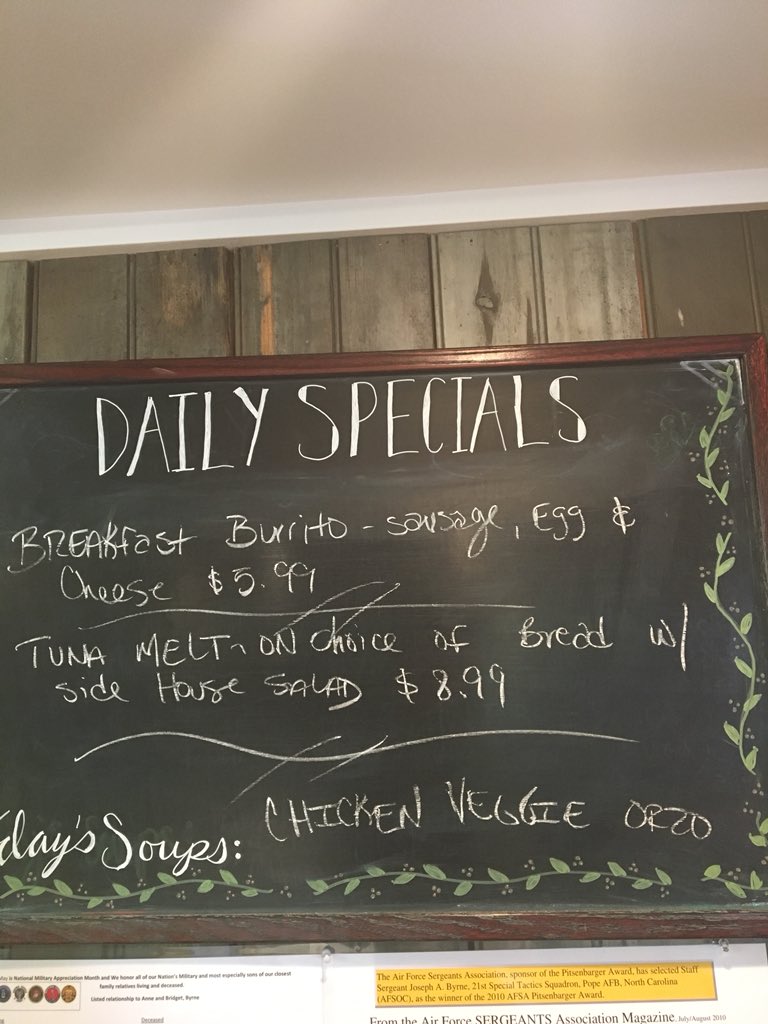 DAILY SPECIALS
BREAKfast Burrito - sausage, Egg &
Cheese $5.99
TUNA MELT - ON choice of Bread w/
side House SALAD $8.99
day's Soups: CHICKEN VEGGIE ORZO
May is National Military Appreciation Month and We honor all of our Nation's Military and most especially sons of our closest
family relatives living and deceased.
Listed relationship to Anne and Bridget, Byrne
Deceased
The Air Force Sergeants Association, sponsor of the Pitsenbarger Award, has selected Staff
Sergeant Joseph A. Byrne, 21st Special Tactics Squadron, Pope AFB, North Carolina
(AFSOC), as the winner of the 2010 AFSA Pitsenbarger Award.
From the Air Force SERGEANTS Association Magazine, July/August 2010